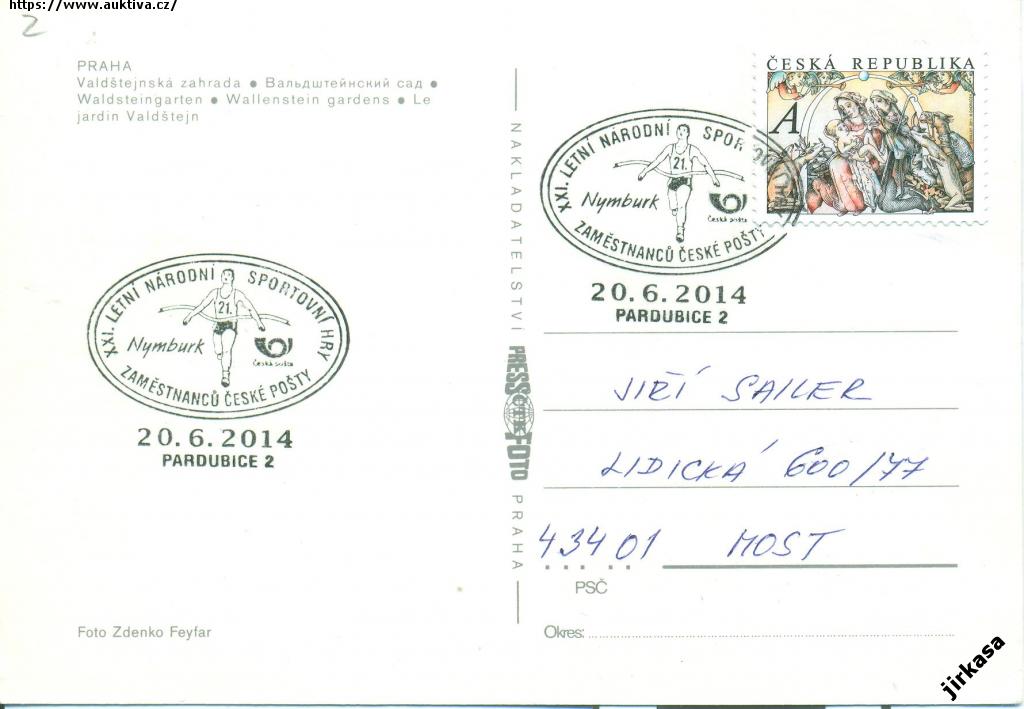 https://www.auktiva.cz/
2
PRAHA
Valdštejnská zahrada ● Вальдштейнский сад ●
Waldsteingarten ● Wallenstein gardens ● Le
jardin Valdštejn
XXI. LETNÍ NÁRODNÍ SPORTOVNÍ HRY
21.
Nymburk
Česká pošta
ZAMĚSTNANCŮ ČESKÉ POŠTY
20.6.2014
PARDUBICE 2
Foto Zdenko Feyfar
NAKLADATELSTVÍ
PRESSFOTO
PRAHA
ČESKÁ REPUBLIKA
A
XXI. LETNÍ NÁRODNÍ SPOR
21.
Nymburk
Česká pošta
ZAMĚSTNANCŮ ČESKÉ POŠTY
20.6.2014
PARDUBICE 2
JIŘÍ SAILER
LIDICKÁ 600/77
43401 MOST
PSČ
Okres:
jirkasa